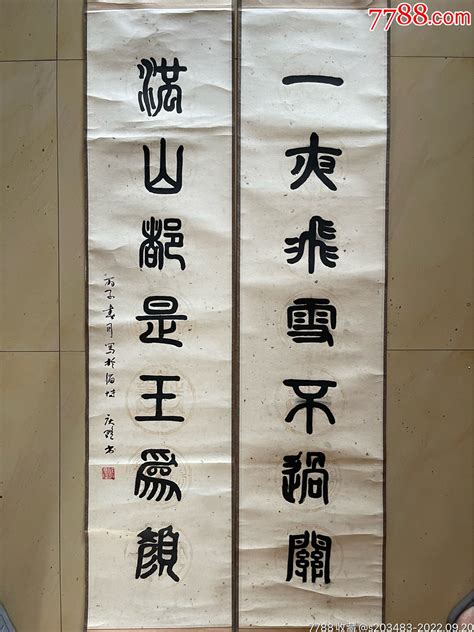 7788.com
一夜飛雪不過關
滿山都是王爲顏
丙子春月
7788收藏@s203483-2022.09.20